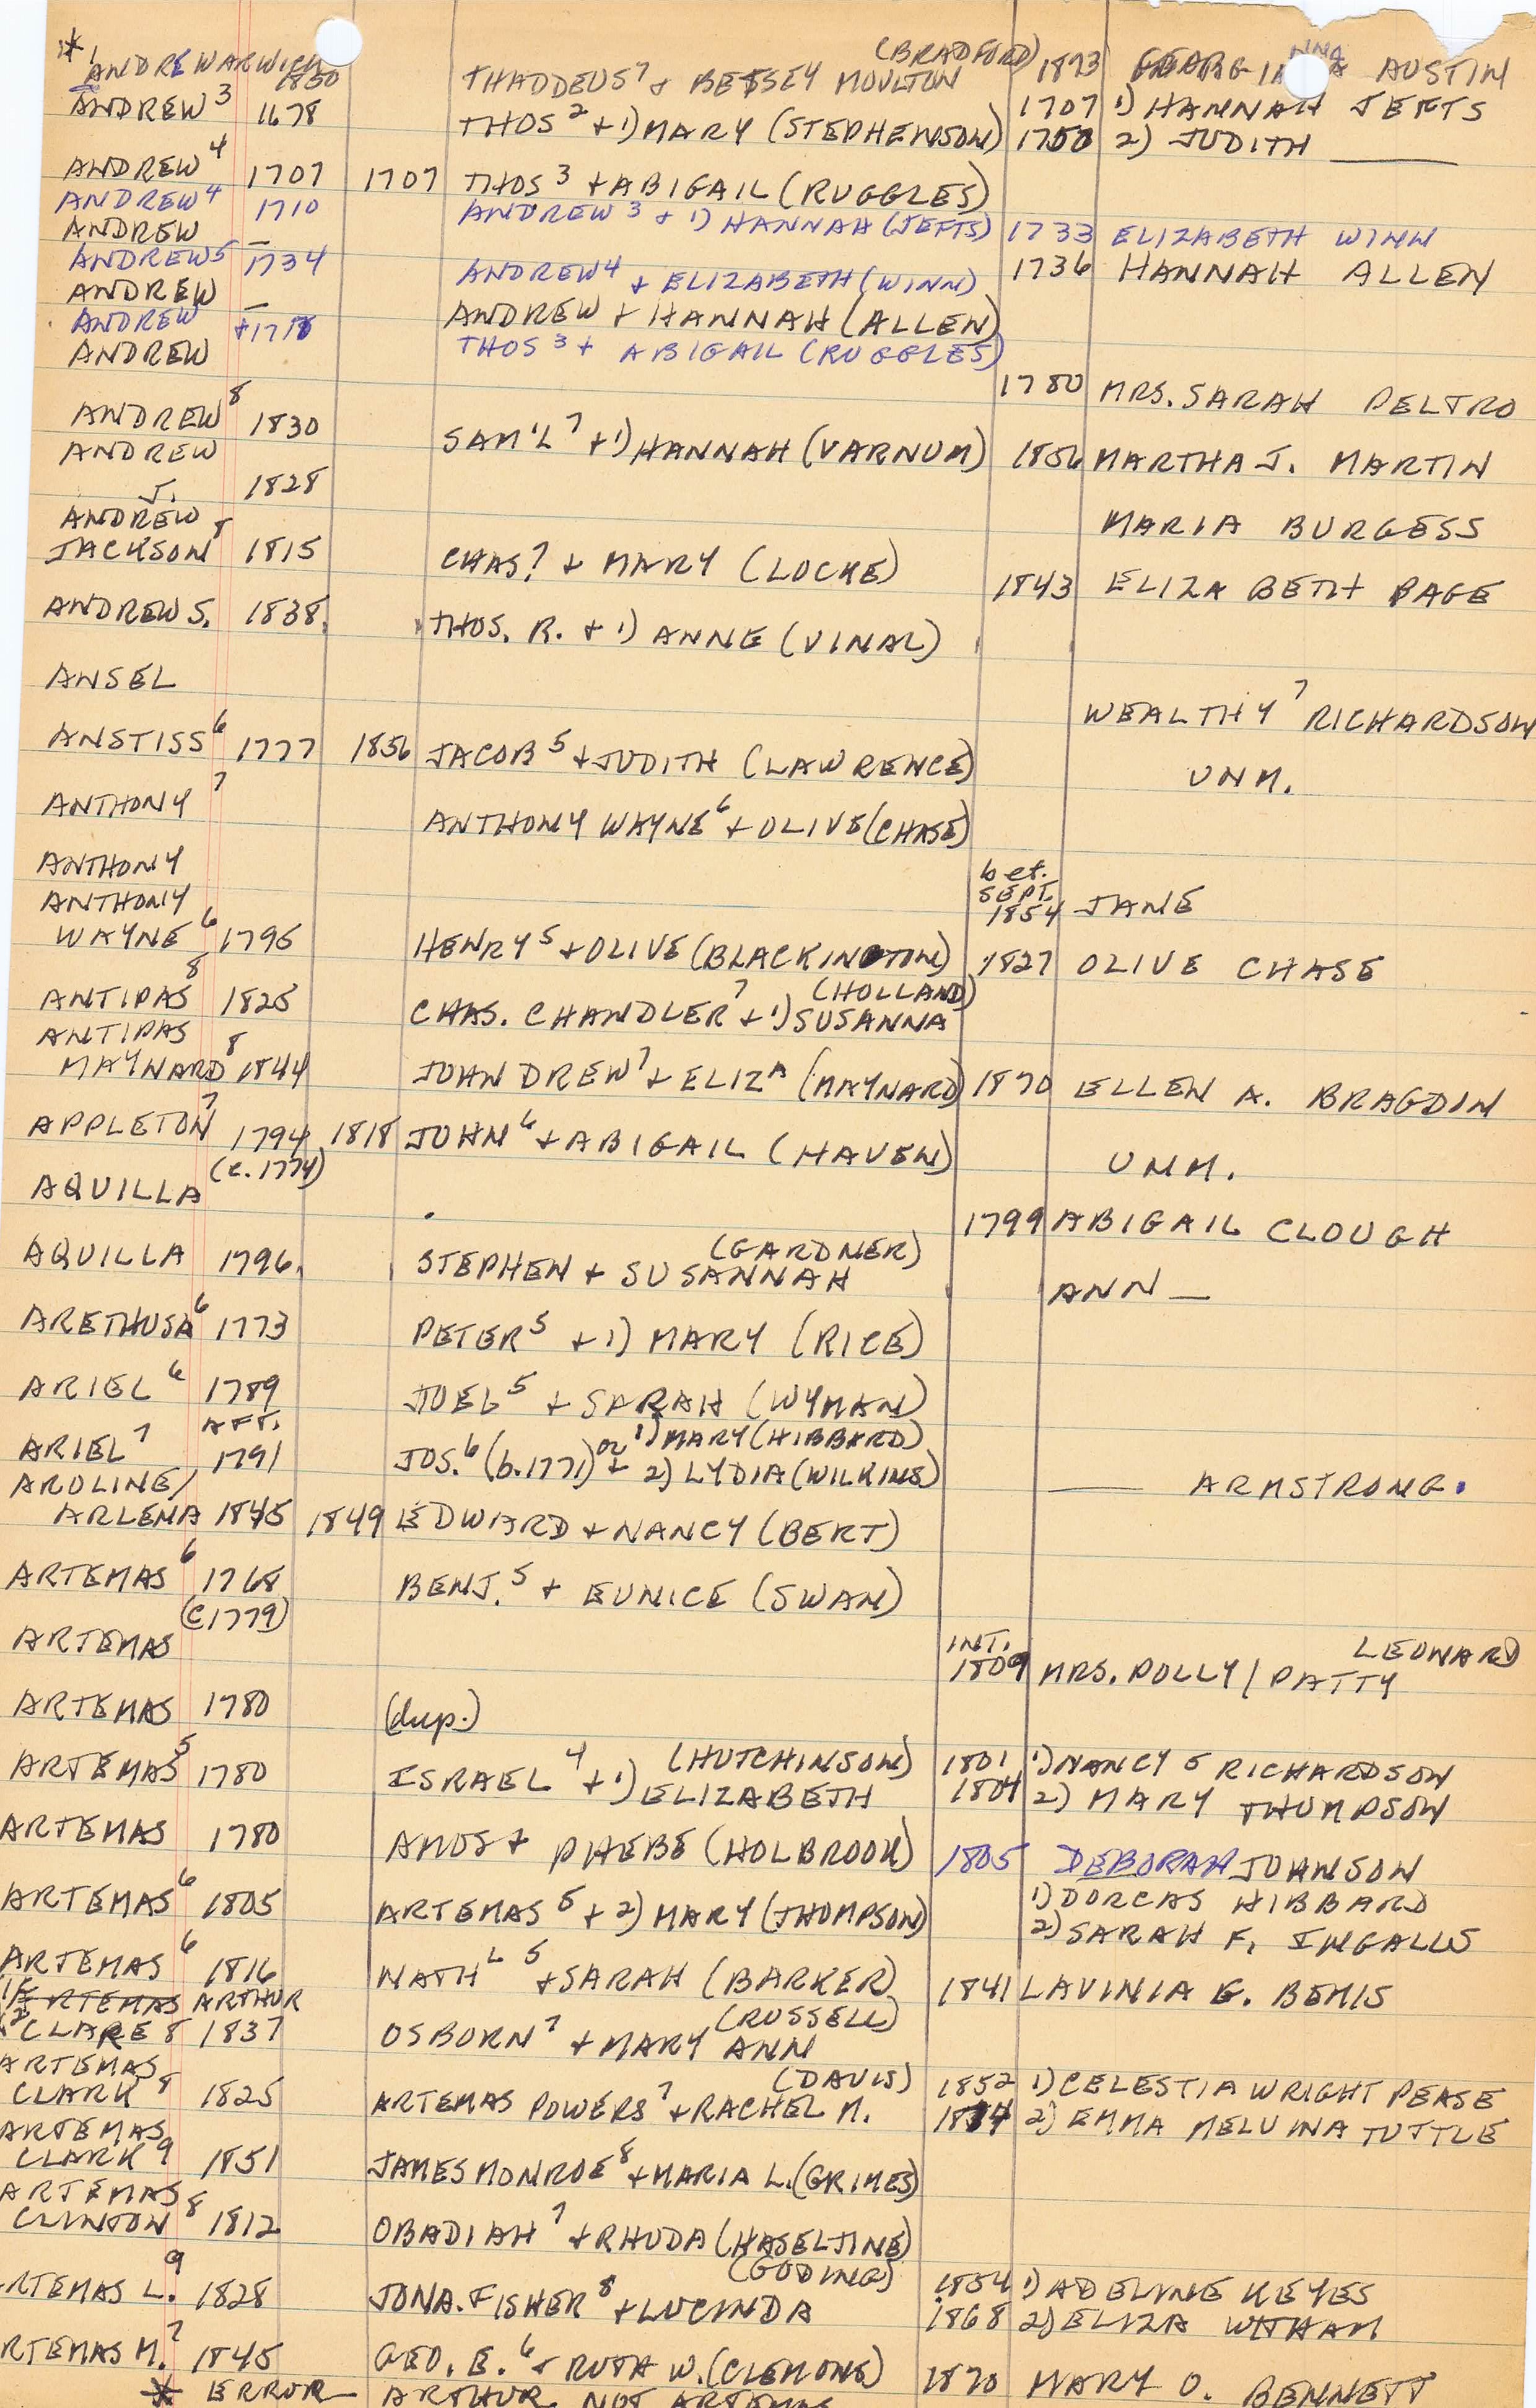 * ANDREW ARWICH 1830 THADDEUS⁷ + BETSEY MOULTON (BRADFORD) 1873 GEORGIANNA AUSTIN
ANDREW³ 1678 THOS² + 1) MARY (STEPHENSON) 1707 1) HANNAH JEFTS
1750 2) JUDITH ____
ANDREW⁴ 1707 1707 THOS³ + ABIGAIL (RUGGLES)
ANDREW⁴ 1710 ANDREW³ + 1) HANNAH (JEFTS) 1733 ELIZABETH WINN
ANDREW — 1736 HANNAH ALLEN
ANDREW⁵ 1734 ANDREW⁴ + ELIZABETH (WINN)
ANDREW — ANDREW + HANNAH (ALLEN)
ANDREW THOS³ + ABIGAIL (RUGGLES)
ANDREW 1780 MRS. SARAH PELTRO
ANDREW⁸ 1830 SAM'L⁷ + 1) HANNAH (VARNUM) 1856 MARTHA J. MARTIN
ANDREW
J. 1828 MARIA BURGESS
ANDREW
JACKSON⁸ 1815 CHAS⁷ + MARY (LOCKE) 1843 ELIZABETH PAGE
ANDREW S. 1838. THOS. R. + 1) ANNE (VINAL)
ANSEL WEALTHY⁷ RICHARDSON
ANSTISS⁶ 1777 1856 JACOB⁵ + JUDITH (LAWRENCE) UNM.
ANTHONY⁷ ANTHONY WAYNE⁶ + OLIVE (CHASE)
ANTHONY bet. SEPT. 1854 JANE
ANTHONY
WAYNE⁶ 1795 HENRY⁵ + OLIVE (BLACKINGTON) 1827 OLIVE CHASE
ANTIPAS⁸ 1825 CHAS. CHANDLER⁷ + 1) SUSANNA (HOLLAND)
ANTIPAS
MAYNARD⁸ 1844 JOHN DREW⁷ + ELIZA (MAYNARD) 1870 ELLEN A. BRAGDIN
APPLETON⁷ 1794 1818 JOHN⁶ + ABIGAIL (HAVEN) UNM.
AQUILLA (c. 1774) 1799 ABIGAIL CLOUGH
AQUILLA 1796. STEPHEN + SUSANNAH (GARDNER) ANN —
ARETHUSA⁶ 1773 PETER⁵ + 1) MARY (RICE)
ARIEL⁶ 1789 JOEL⁵ + SARAH (WYMAN)
ARIEL⁷ AFT. 1791 JOS.⁶ (b. 1771) + 1) MARY (HIBBARD) or 2) LYDIA (WILKINS) ____ ARMSTRONG.
AROLINE/
ARLENA 1845 1849 EDWARD + NANCY (BERT)
ARTEMAS⁶ 1768 BENJ.⁵ + EUNICE (SWAN)
ARTEMAS (c 1779) INT. 1809 MRS. POLLY/PATTY LEONARD
ARTEMAS 1780 (dup.)
ARTEMAS⁵ 1780 ISRAEL⁴ + 1) ELIZABETH (HUTCHINSON) 1801 1) NANCY⁵ RICHARDSON
1804 2) MARY THOMPSON
ARTEMAS 1780 AMOS + PHEBE (HOLBROOK) 1805 DEBORAH JOHNSON
ARTEMAS⁶ 1805 ARTEMAS⁵ + 2) MARY (THOMPSON) 1) DORCAS HIBBARD
2) SARAH F. INGALLS
ARTEMAS⁶ 1816 NATHL⁵ + SARAH (BARKER) 1841 LAVINIA G. BEMIS
ARTEMAS ARTHUR
CLARE⁸ 1837 OSBORN⁷ + MARY ANN (RUSSELL)
ARTEMAS
CLARK⁸ 1825 ARTEMAS POWERS⁷ + RACHEL M. (DAVIS) 1852 1) CELESTIA WRIGHT PEASE
1874 2) EMMA MELVINA TUTTLE
ARTEMAS
CLARK⁹ 1851 JAMES MONROE⁸ + MARIA L. (GRIMES)
ARTEMAS
CLINTON⁸ 1812 OBADIAH⁷ + RHODA (HASELTINE)
RTEMAS L.⁹ 1828 JONA. FISHER⁸ + LUCINDA (GODING) 1854 1) ADELINE KEYES
1868 2) ELIZA WITHAM
RTEMAS M.⁷ 1845 GEO. E.⁶ + RUTH W. (CLEMONS) 1870 MARY O. BENNETT
* ERROR — ARTHUR NOT ARTEMAS